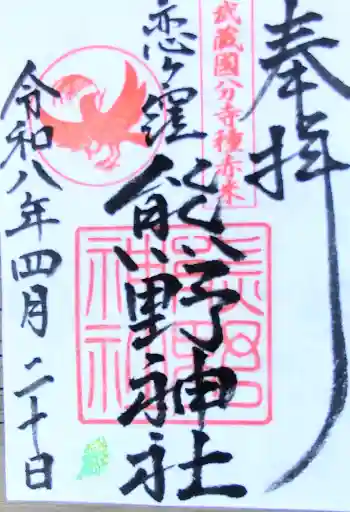 奉拝
武蔵國分寺種赤米
恋ヶ窪
熊野神社
熊野神社
令和八年四月二十日